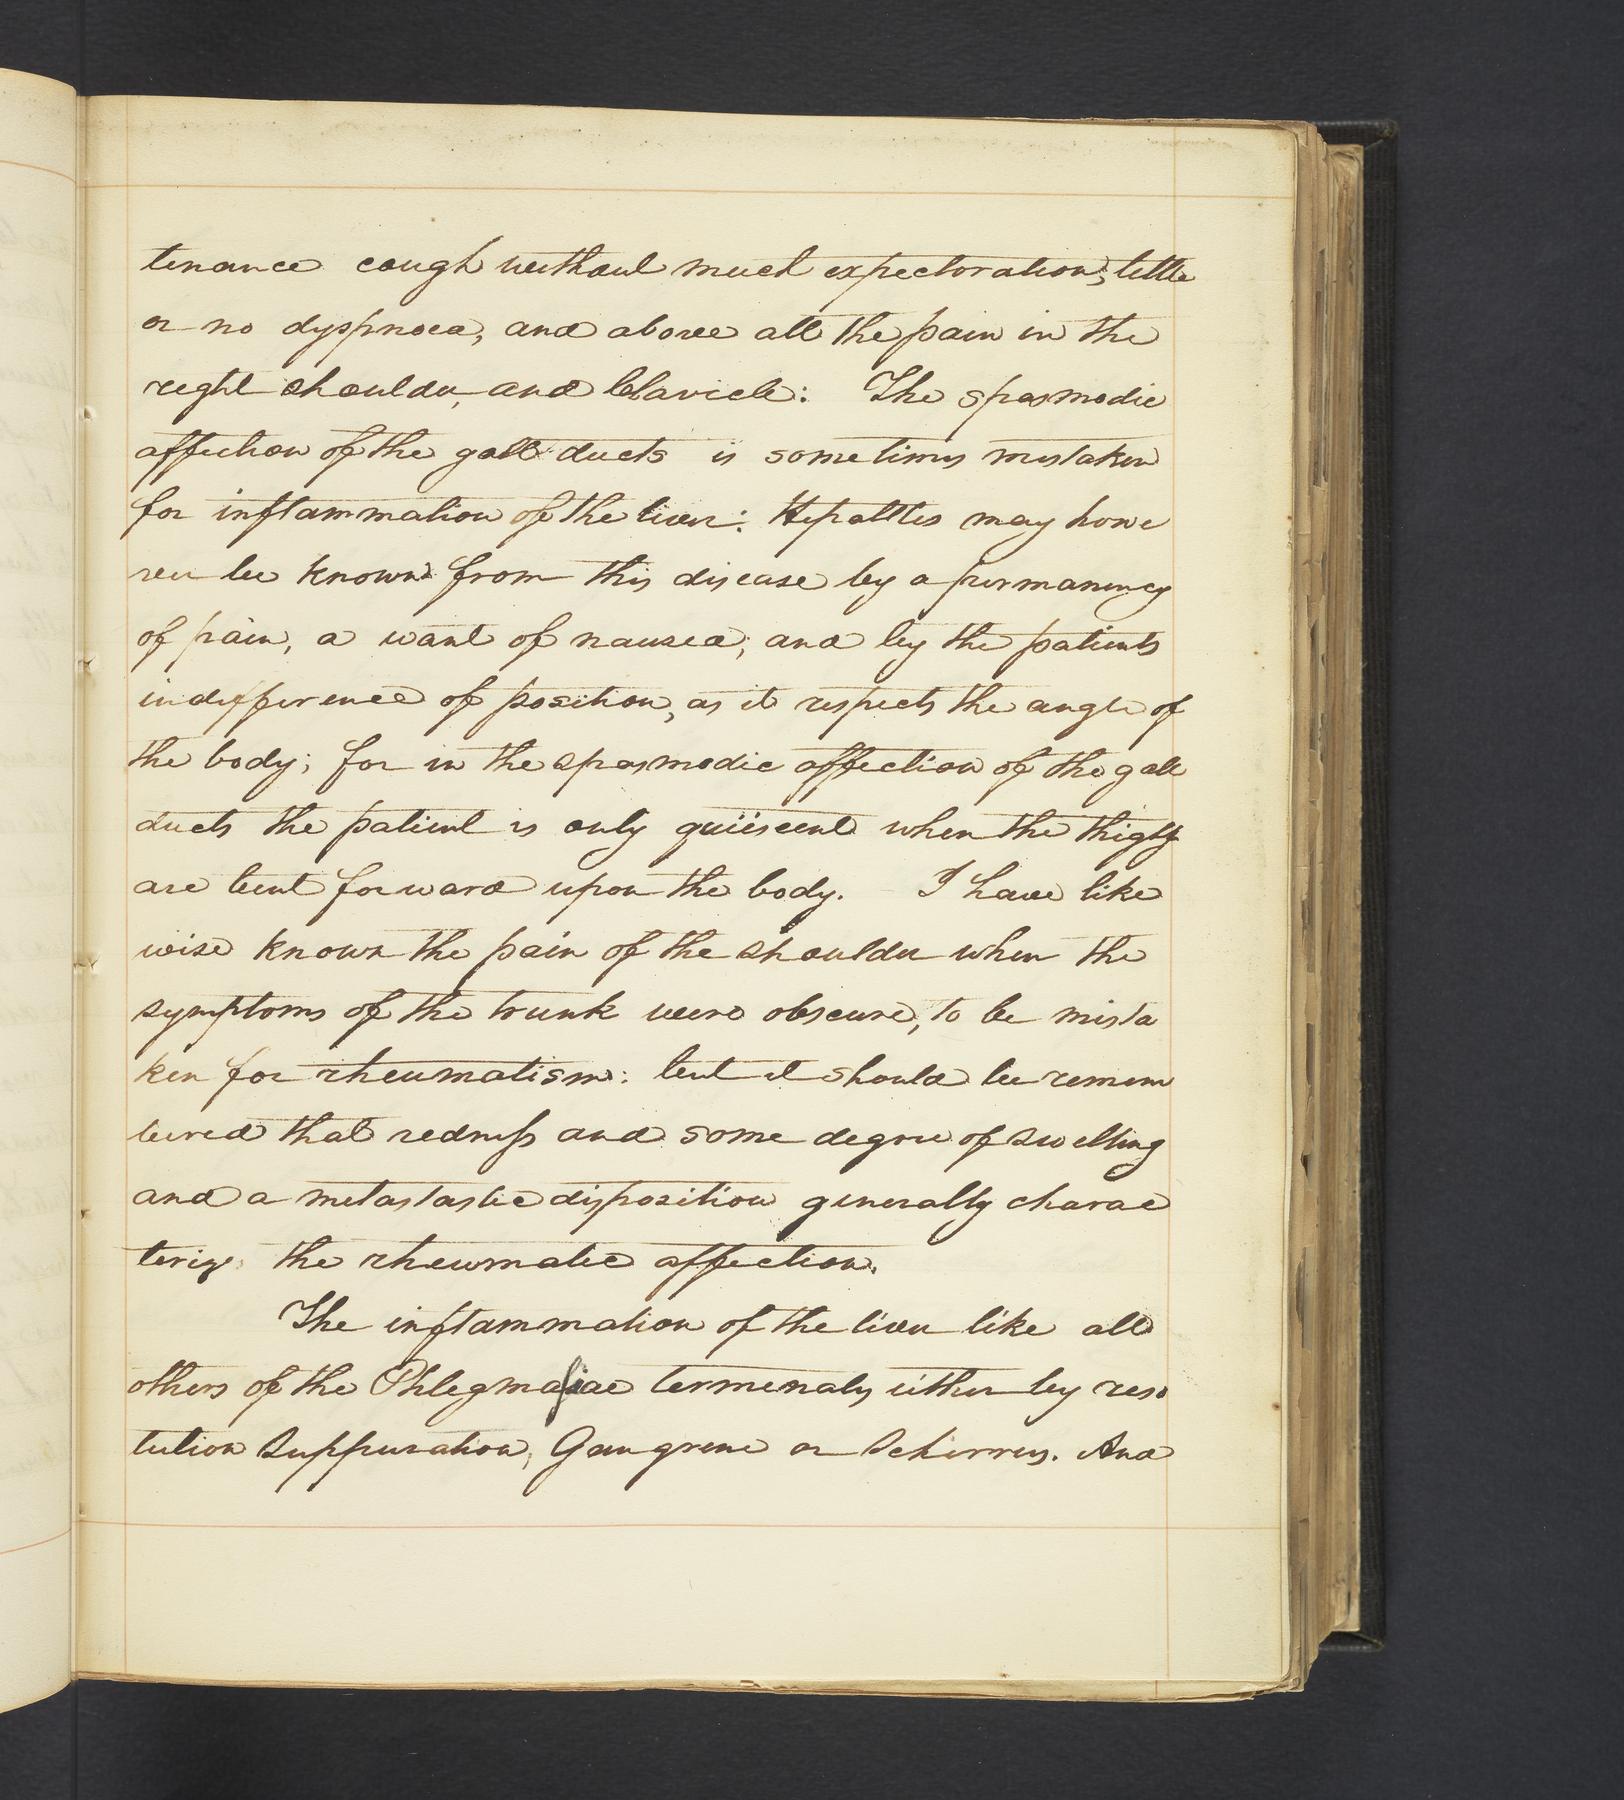 tenance cough without much expectoration, little
or no dyspnoea, and above all the pain in the
right shoulder, and Clavicle: The spasmodic
affection of the gall ducts is sometimes mistaken
for inflammation of the liver: Hepatites may howe
ver be known from this disease by a permanency
of pain, a want of nausea, and by the patients
indifference of position, as it respects the angle of
the body; for in the spasmodic affection of the gall
ducts the patient is only quiescent when the thighs
are bent forward upon the body. I have like
wise known the pain of the shoulder when the
symptoms of the trunk were obscure, to be mista
ken for rheumatism: but it should be remem
bered that redness and some degree of swelling
and a metastastic disposition generally charac
terize the rheumatic affection.
The inflammation of the liver like all
others of the Phlegmasiae terminates either by reso
lution Suppuration, Gangrene or Schirrus. And